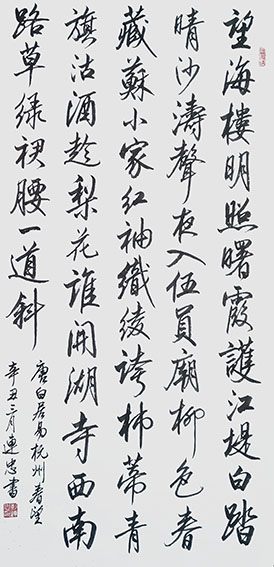 望海樓明照曙霞護江堤白踏
晴沙濤聲夜入伍員廟柳色春
藏蘇小家紅袖織綾誇柿蒂青
旗沽酒趁梨花誰開湖寺西南
路草綠裙腰一道斜
唐白居易杭州春望
辛丑三月連忠書